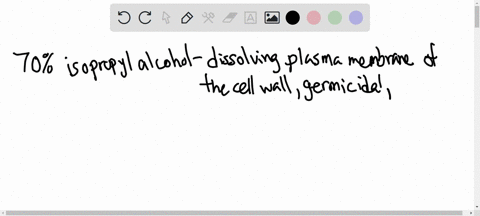 70% isopropyl alcohol - dissolving plasma membrane of
the cell wall, germicidal,